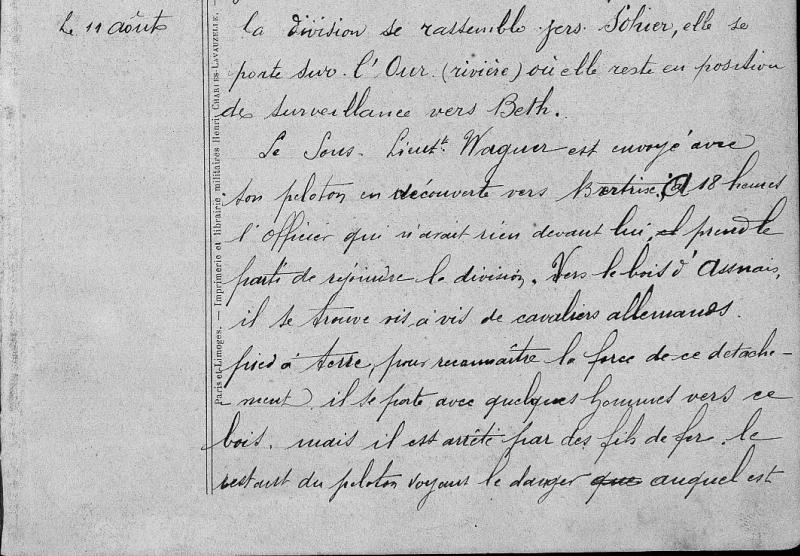 Le 11 août
la division se rassemble vers Sohier, elle se
porte sur l'Our (rivière) où elle reste en position
de surveillance vers Beth.
Le Sous-Lieut^t. Wagner est envoyé avec
son peloton en découverte vers Bertrix. à 18 heures
l'officier qui n'avait rien devant lui, prend le
parti de rejoindre la division. Vers le bois d'Assnais,
il se trouve vis à vis de cavaliers allemands.
pied à terre, pour reconnaître la force de ce détache-
-ment il se porte avec quelques hommes vers ce
bois. mais il est arrêté par des fils de fer. le
restant du peloton voyant le danger que auquel est
Paris et Limoges. — Imprimerie et librairie militaires Henri CHARLES-LAVAUZELLE.